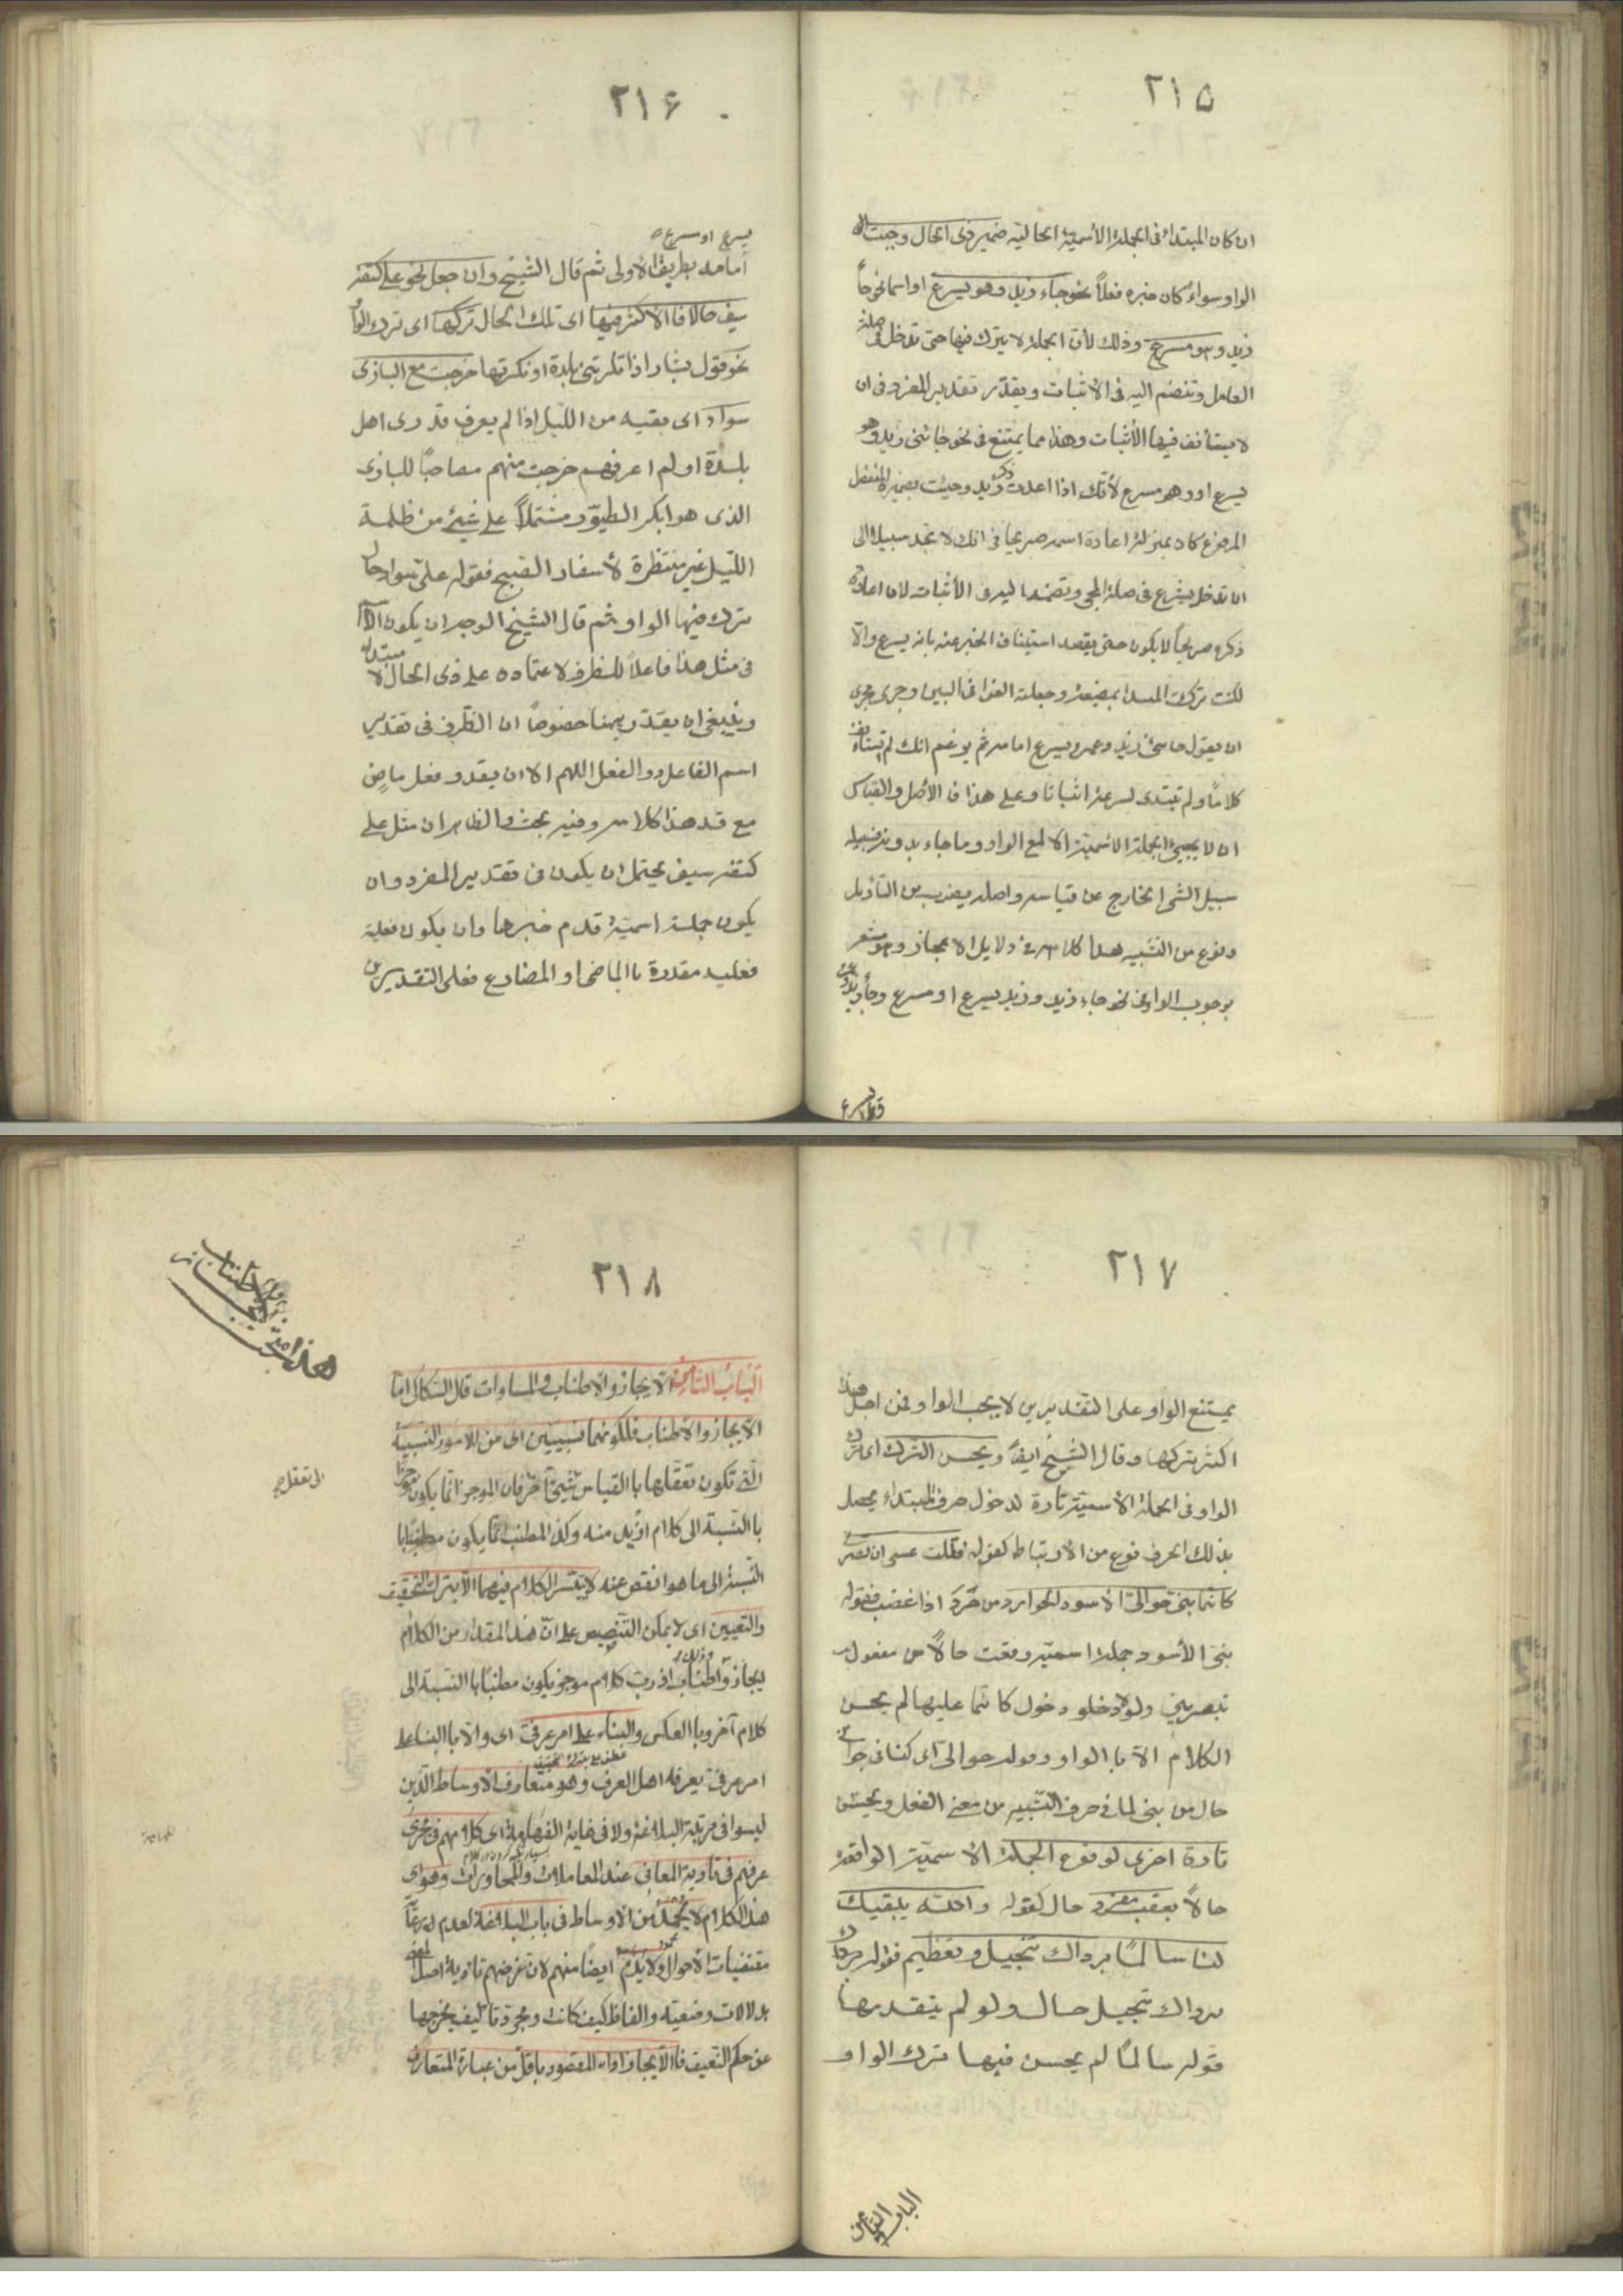 ٢١۵
ان كان المبتداء فى الجملة الأسمية الحالية ضمير ذى الحال وجبت
الواو سواء كان خبره فعلاً نحو جاء زيد وهو يسرع او اسما نحو جاء
زيد وهو مسرع وذلك لأن الجملة لا يترك فيها حتى تدخل فى صلة
العامل وتنضم اليه فى الاثبات ويقدّر تقدير المفرد فى ان
لا يستأنف فيها الأثبات وهذا مما يمتنع فى نحو جائنى زيد وهو
يسرع او وهو مسرع لأنك اذا اعدت ذكر زيد وجئت بضميره المنفصل
المرفوع كان بمنزلة اعادة اسمه صريحا فى انك لا تجد سبيلا الى
ان تدخل يسرع فى صلة المجى وتضمه اليه فى الأثبات لان اعادة
ذكره صريحاً لا يكون حتى يقصد استيناف الخبر عنه بانه يسرع والا
لكنت تركت المبتدا بمضيعة وجعلته لغوا فى البين وجرى مجرى
ان يقول جاءنى زيد وعمرو يسرع امامه ثم يزعم انك لم تستأنف
كلاماً ولم تبتدى لسرعة اثباتا وعلى هذا فالأصل والقياس
ان لا يجيئ الجملة الاسمية الا مع الواو وما جاء بدونه فسبيله
سبيل الشى الخارج عن قياسه واصله بضرب من التأويل
ونوع من التشبيه هذا كلامه فى دلايل الاعجاز وهو مشعر
بوجوب الواو فى نحو جاء زيد وزيد يسرع او مسرع وجاء زيد وعمرو
٢١۶
يسرع او مسرع
امامه بطريق الاولى ثم قال الشيخ وان جعل نحو على كتفه
سيف حالا فالاكثر فيها اى تلك الحال تركها اى ترك الواو
نحو قول بشار اذا انكرتنى بلدة او نكرتها خرجت مع البازى
سواد اى بقيه من الليل اذا لم يعرف قدرى اهل
بلدة او لم اعرفهم خرجت منهم مصاحبًا للبازى
الذى هو ابكر الطيور مشتملاً على شيئ من ظلمة
الليل غير منتظرة لأسفار الصبح فقوله على سواد حال
ترك فيها الواو ثم قال الشيخ الوجه ان يكون الاسم
فى مثل هذا فاعلاً للظرف لاعتماده على ذى الحال لا مبتداء
وينبغى ان يقدّر ههنا خصوصاً ان الظرف فى تقدير
اسم الفاعل دون الفعل اللهم الا ان يقدر فعل ماضٍ
مع قد هذا كلامه وفيه بحث والظاهر ان مثل على
كتفه سيف يحتمل ان يكون فى تقدير المفرد وان
يكون جملة اسمية قدم خبرها وان يكون فعلية
فعليه مقدرة بالماضى او المضارع فعلى التقديرين
٢١٧
يمتنع الواو على التقديرين لا يجب الواو فمن اجل هذا
اكثر تركها وقال الشيخ ايضاً ويحسن الترك اى ترك
الواو فى الجملة الاسمية تارة لدخول حرف المبتداء يحصل
بذلك الحرف نوع من الارتباط كقوله فقلت عسى ان تبصرينى
كانما بنىّ حوالىّ الاسود الحوارد من حَرَدَ اذا غضب فقوله
بنىّ الأسود جملة اسميّه وقعت حالاً من مفعول
تبصرينى ولولا دخول كانما عليها لم يحسن
الكلام الا بالواو وقوله حوالى اى كنافى جوانبى
حال من بنى لما فى حرف التشبيه من معنى الفعل ويحسن
تارة اخرى لوقوع الجملة الاسميّة الواقعة
حالاً بعقب مفرد حال كقوله والله يبقيك
لنا سالمًا برداك تبجيل وتعظيم فقوله
برداك تبجيل حال ولو لم يتقدمها
قوله سالمًا لم يحسن فيها ترك الواو
الباب الثامن
٢١٨
الباب الثامن الايجاز والاطناب والمساوات قال السكاكى اما
الايجاز والاطناب فلكونهما نسبيين اى من الامور النسبية
التى تكون تعقلها بالقياس الى شيئ آخر فان الموجز انما يكون موجزا
بالنسبة الى كلام ازيد منه وكذا المطنب انما يكون مطنبًا با
النسبة الى ما هو انقص عنه لا يتيسر الكلام فيهما الا بترك التحقيق
والتعيين اى لا يمكن التنصيص على ان هذا المقدار من الكلام
ايجاز وذلك اطناب اذ رب كلام موجز يكون مطنبًا بالنسبة الى
كلام آخر وبالعكس والبناء على امر عرفى اى والا بالبناء على
امر عرفى يعرفه اهل العرف وهو متعارف الاوساط الذين
ليسوا فى مرتبة البلاغة ولا فى غاية الفهاهة اى كلامهم فى مجرى
عرفهم فى تادية المعانى عند المعاملات والمحاورات وهو اى
هذا الكلام لا يحمد من الاوساط فى باب البلاغة لعدم رعاية
مقتضيات الاحوال ولا يذم ايضاً منهم لان غرضهم تادية اصل المعنى
بدلالات وضعيته والفاظ كيف كانت ومجرد تاليف يخرجها
عن حكم النعيق فالايجاز اداء المقصود باقل من عبارة المتعارف